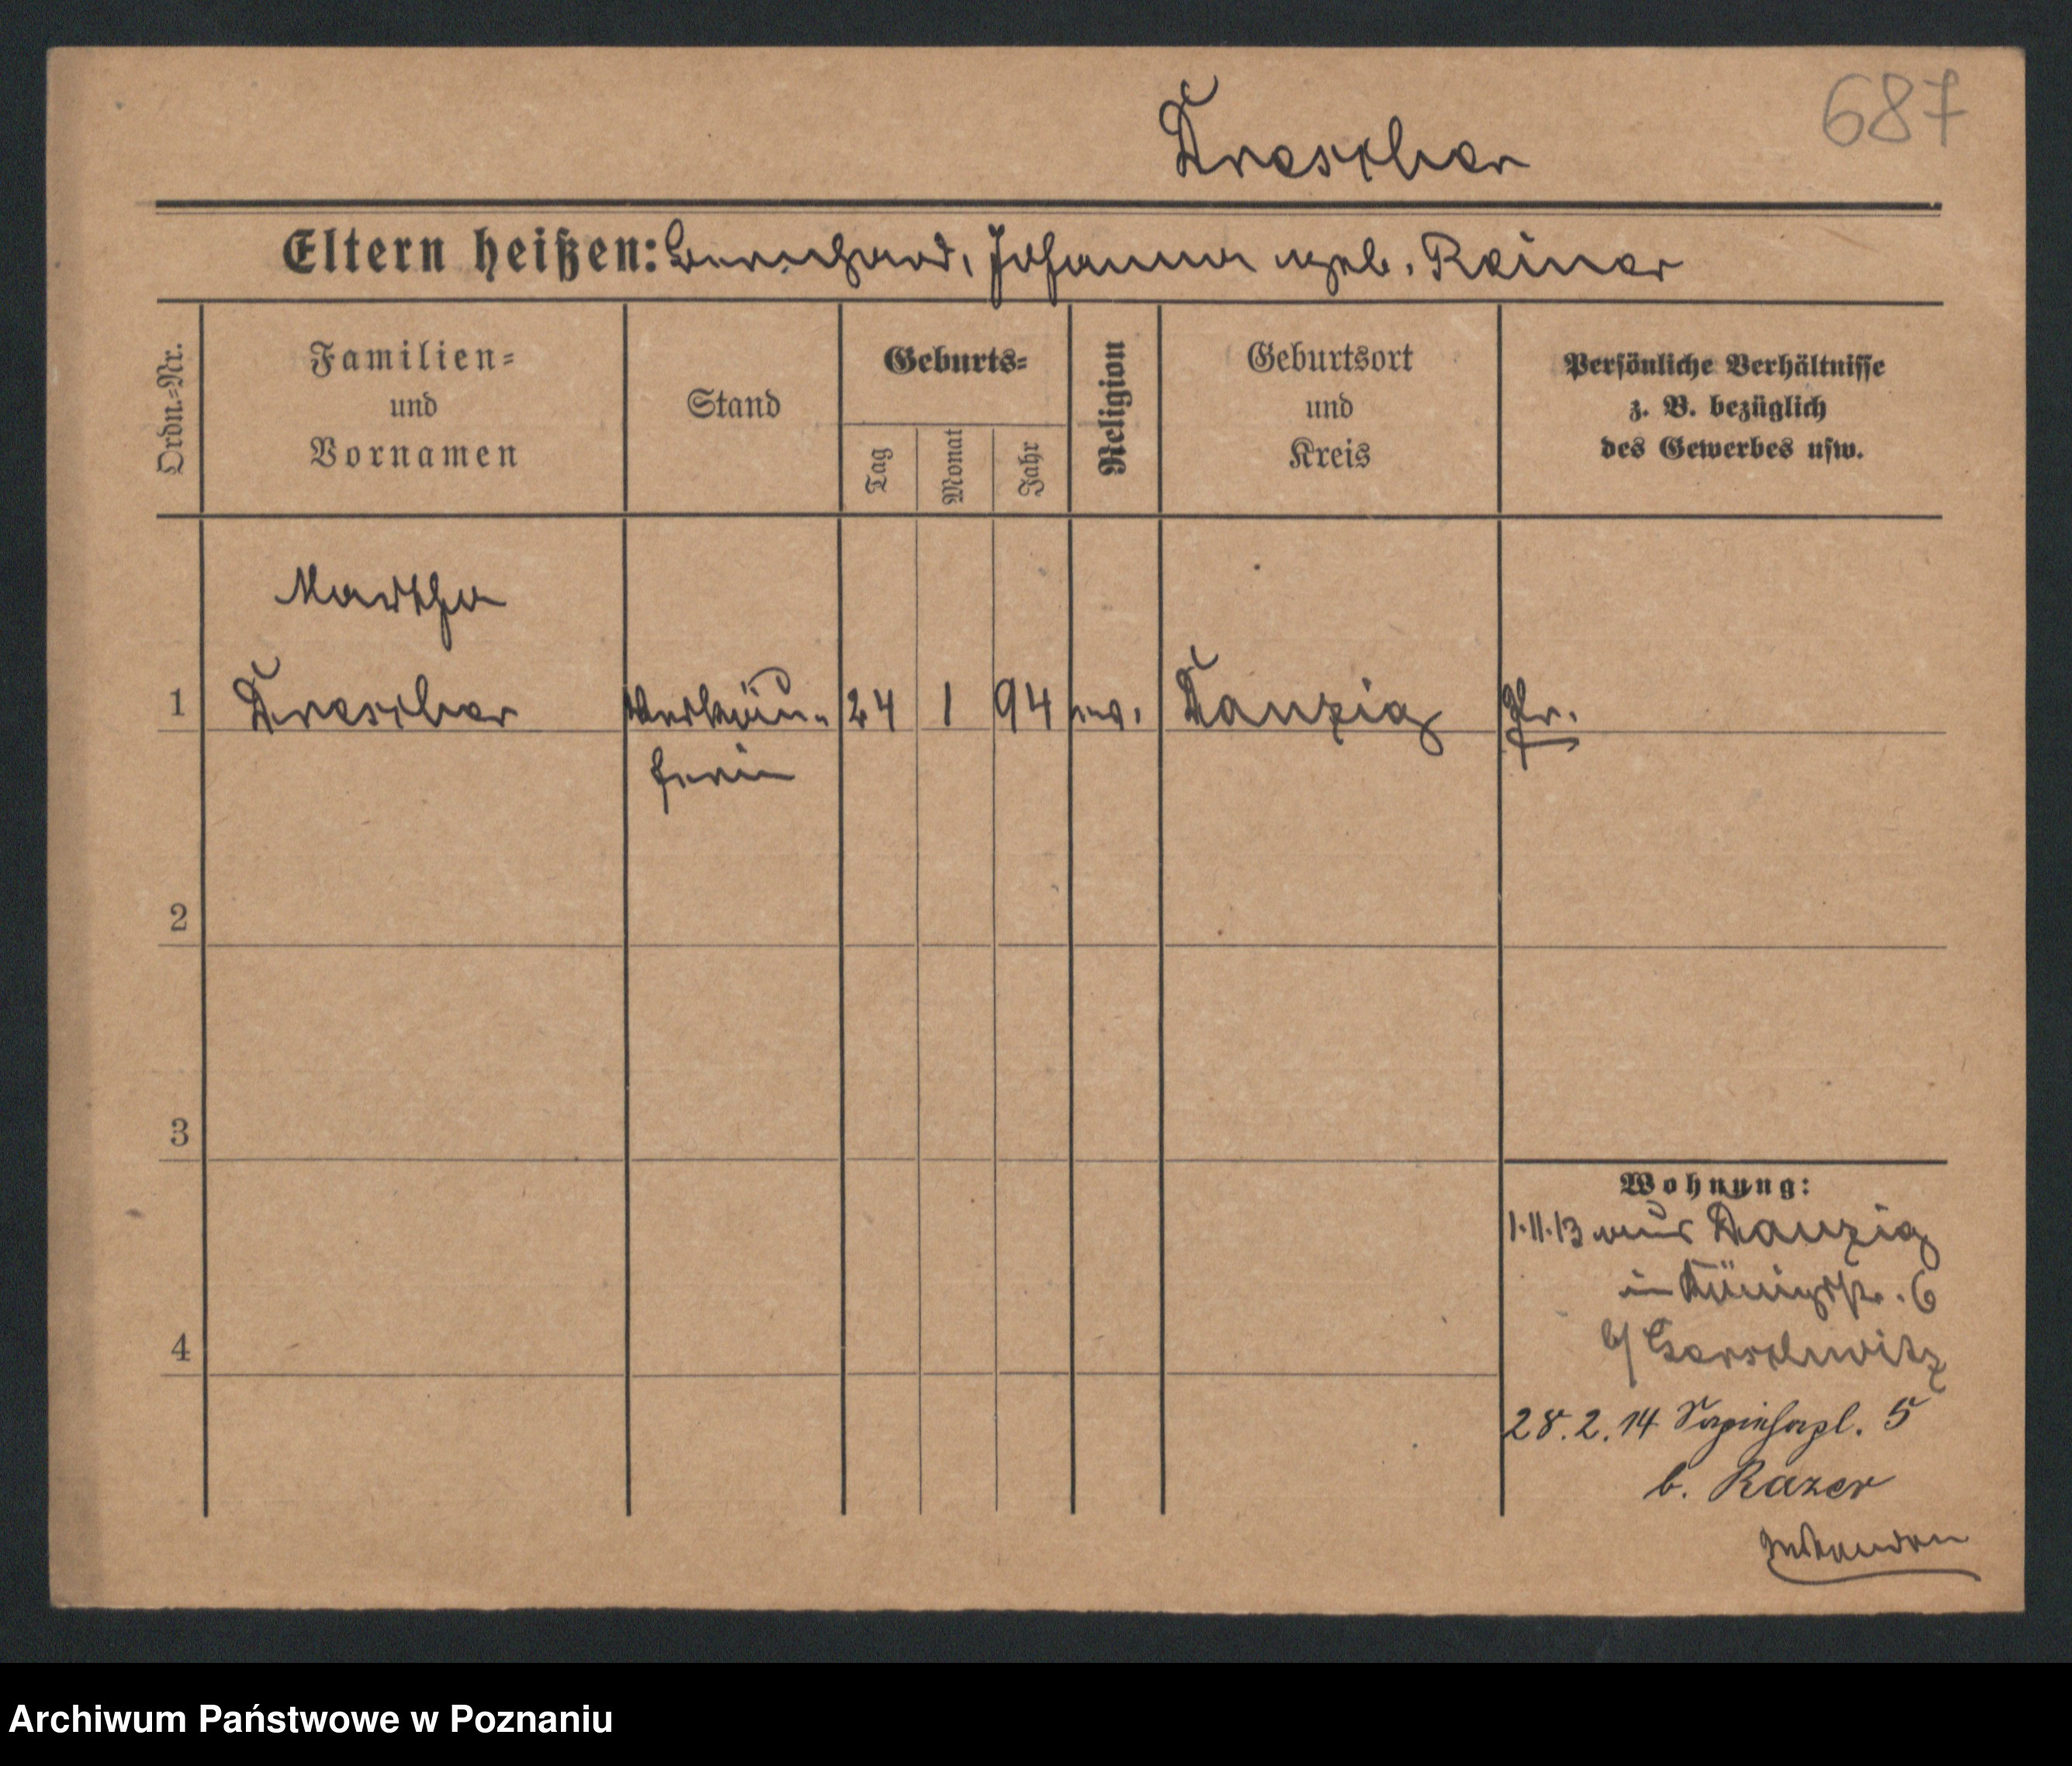 687
Drescher
Eltern heißen: Bernhard, Johanna geb. Reiner
Ordn.-Nr.
Familien-
und
Vornamen
Stand
Geburts-
Tag
Monat
Jahr
Religion
Geburtsort
und
Kreis
Persönliche Verhältnisse
z. B. bezüglich
des Gewerbes usw.
Martha
1 Drescher Verkäu- 24 1 94 Danzig Pr.
ferin
2
3
4
Wohnung:
1.11.13 aus Danzig
in Königstr. 6
b/
28.2.14 Sapiehapl. 5
b. Razer
Archiwum Państwowe w Poznaniu